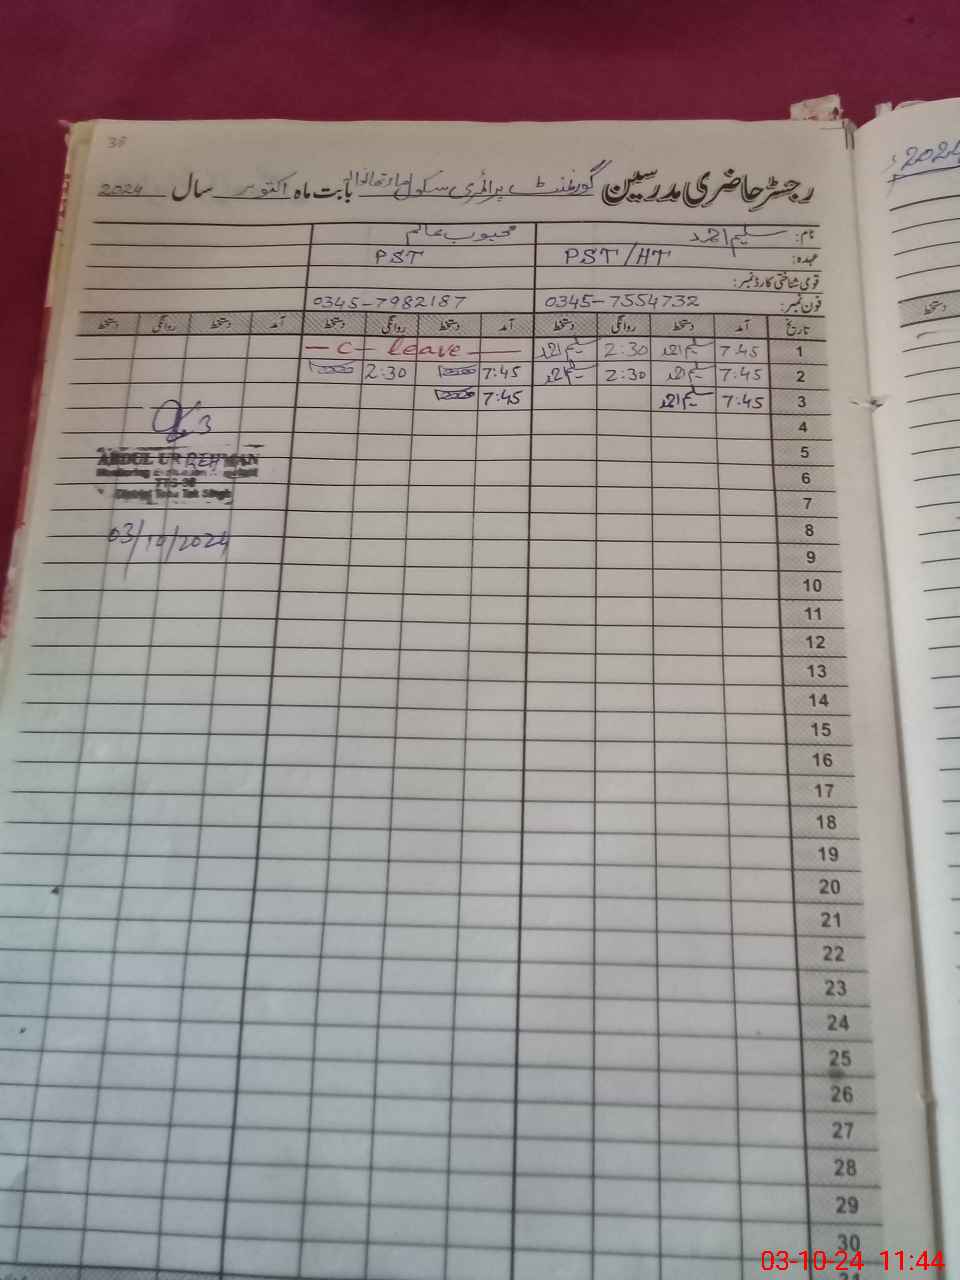 38
رجسٹر حاضری مدرسین گورنمنٹ پرائمری سکول بابت ماہ اکتوبر سال 2024
نام: سلیم احمد محبوب عالم
عہدہ: PST/HT PST
قومی شناختی کارڈ نمبر:
فون نمبر: 0345-7554732 0345-7982187
تاریخ آمد دستخط روانگی دستخط آمد دستخط روانگی دستخط آمد دستخط روانگی دستخط
1 7:45 سلیم احمد 2:30 سلیم احمد — C — leave —
2 7:45 سلیم احمد 2:30 سلیم احمد 7:45 2:30
3 7:45 سلیم احمد 7:45
4
5
6
7
8
9
10
11
12
13
14
15
16
17
18
19
20
21
22
23
24
25
26
27
28
29
30
3
ABDUL UR REHMAN
Monitoring
District Toba Tek Singh
03/10/2024
2024
دستخط
03-10-24 11:44